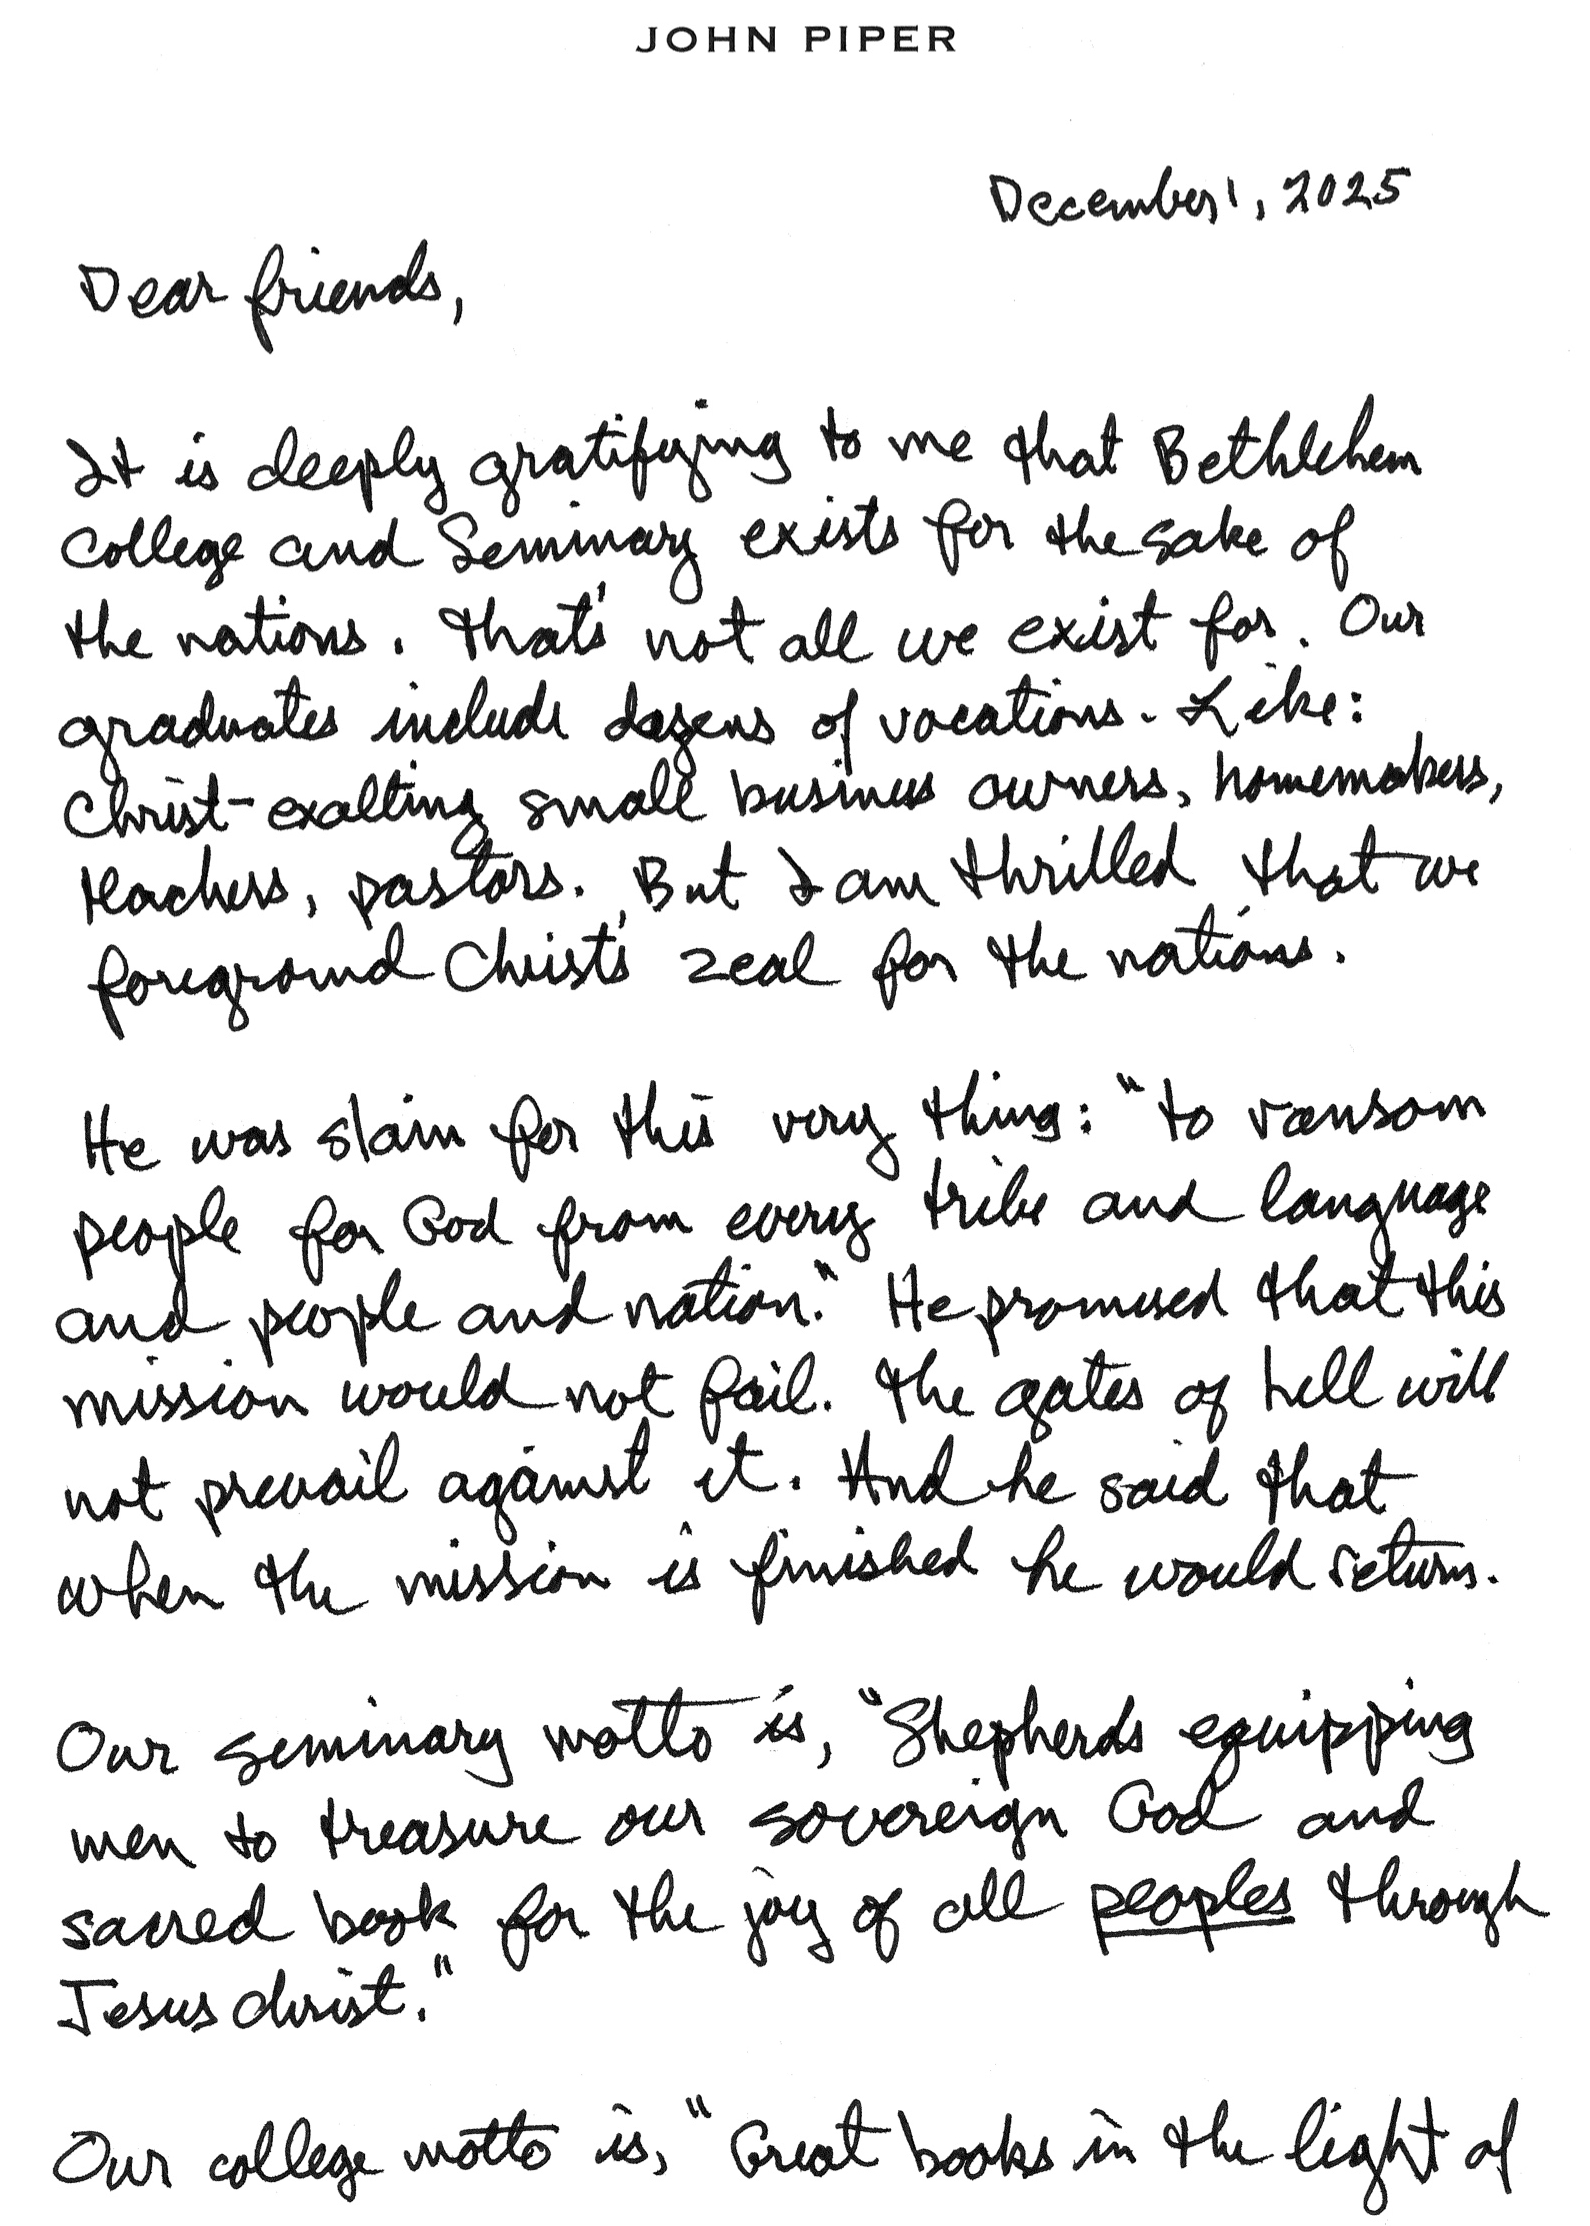 JOHN PIPER
December 1, 2025
Dear friends,
It is deeply gratifying to me that Bethlehem
College and Seminary exists for the sake of
the nations. That's not all we exist for. Our
graduates include dozens of vocations. Like:
Christ-exalting small business owners, homemakers,
teachers, pastors. But I am thrilled that we
foreground Christ's zeal for the nations.
He was slain for this very thing: "to ransom
people for God from every tribe and language
and people and nation." He promised that this
mission would not fail. The gates of hell will
not prevail against it. And he said that
when the mission is finished he would return.
Our seminary motto is, "Shepherds equipping
men to treasure our sovereign God and
sacred book for the joy of all peoples through
Jesus Christ."
Our college motto is, "Great books in the light of